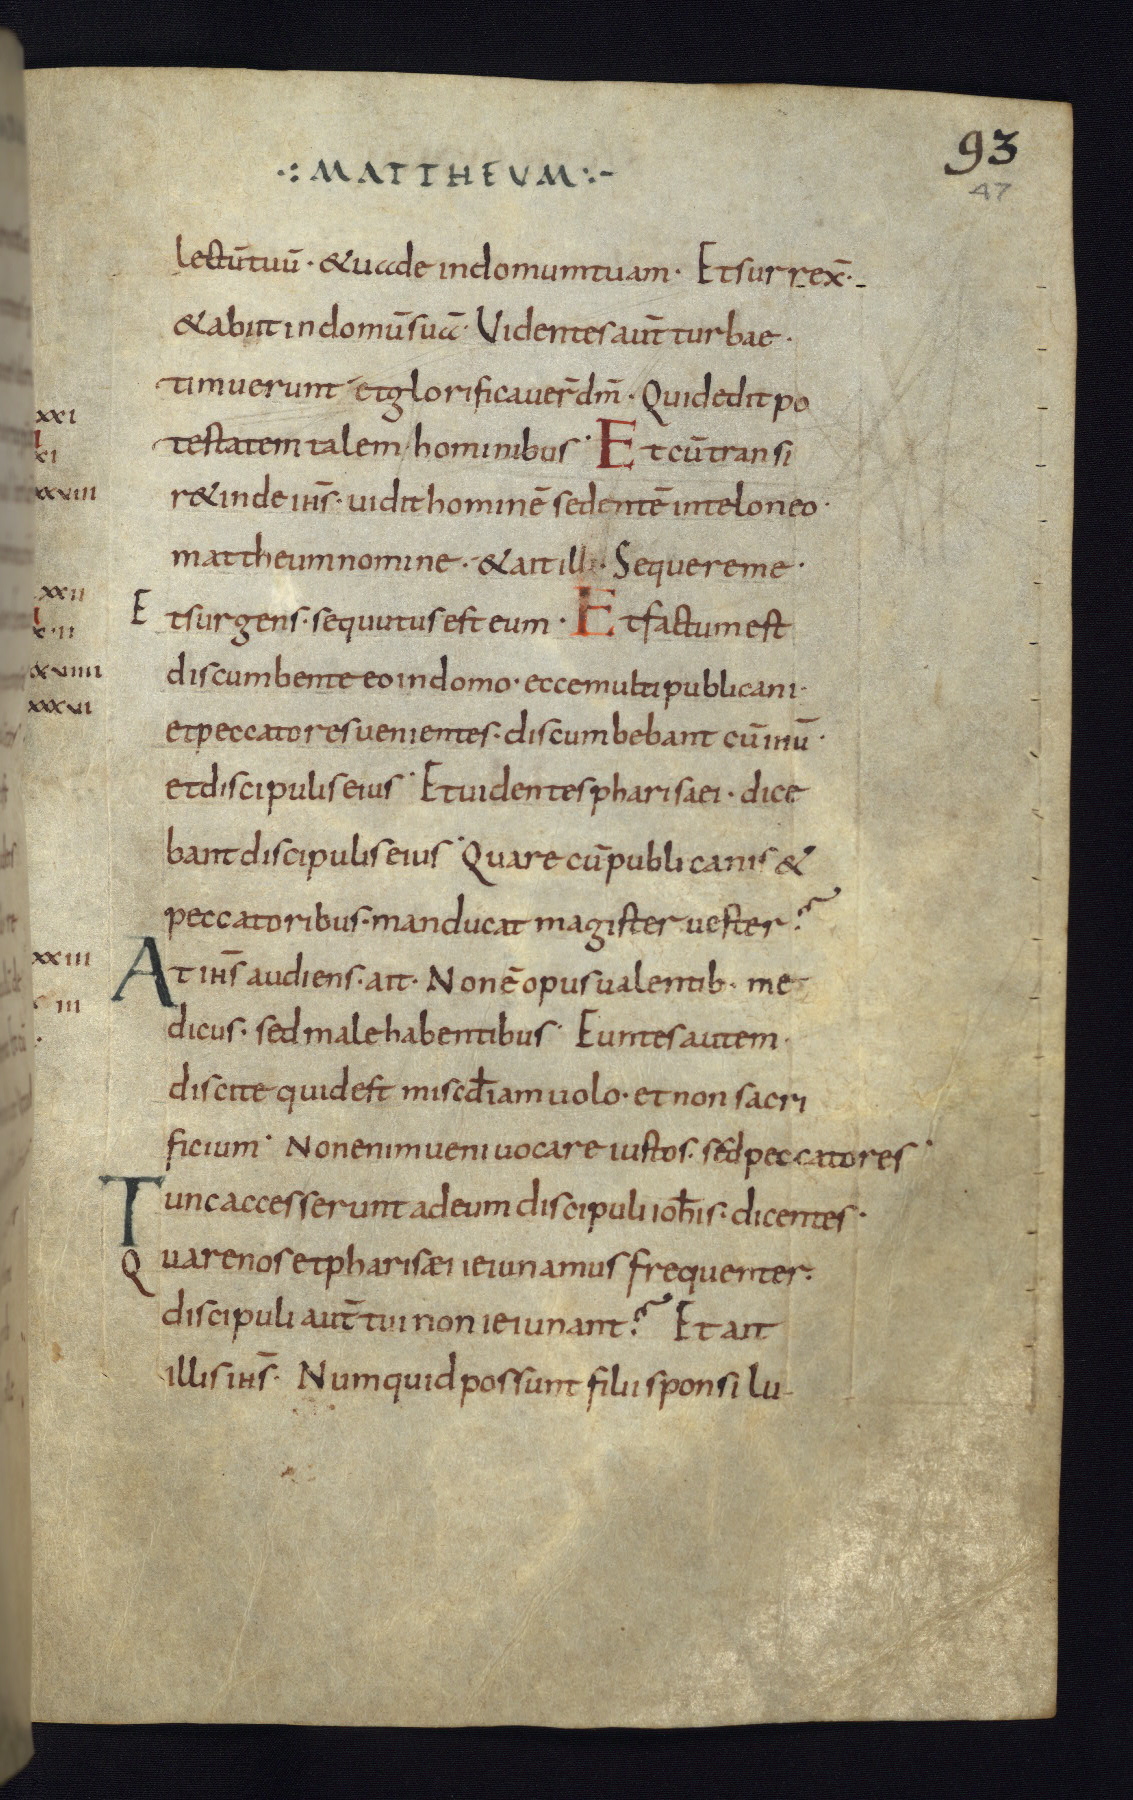 93
47
·:MATTHEUM:·-
lectū tuū· & uade in domum tuam· Et surrex̄·
& abiit in domū suā· Videntes aut̄ turbae·
timuerunt et glorificauer̄ dm̄· Qui dedit po
xxi
testatem talem hominibus· Et cū transi
xxviii
r& inde ihs̄· uidit hominē sedentē in teloneo·
mattheum nomine· & ait illi· Sequere me·
xxii
Et surgens· sequutus est eum· Et factum est
discumbente eo in domo· ecce multi publicani·
xxxvi
et peccatores uenientes· discumbebant cū ihū·
et discipulis eius· Et uidentes pharisaei· dice
bant discipulis eius· Quare cū publicanis &
peccatoribus· manducat magister uester?
xxiii
At ihs̄ audiens· ait· Non ē opus ualentib· me
iii
dicus· sed male habentibus· Euntes autem·
discite quid est miscd̄iam uolo· et non sacri
ficium· Non enim ueni uocare iustos· sed peccatores·
Tunc accesserunt ad eum discipuli ioh̄is· dicentes·
Quare nos et pharisæi ieiunamus frequenter·
discipuli aut̄ tui non ieiunant? Et ait
illis ihs̄· Numquid possunt filii sponsi lu-